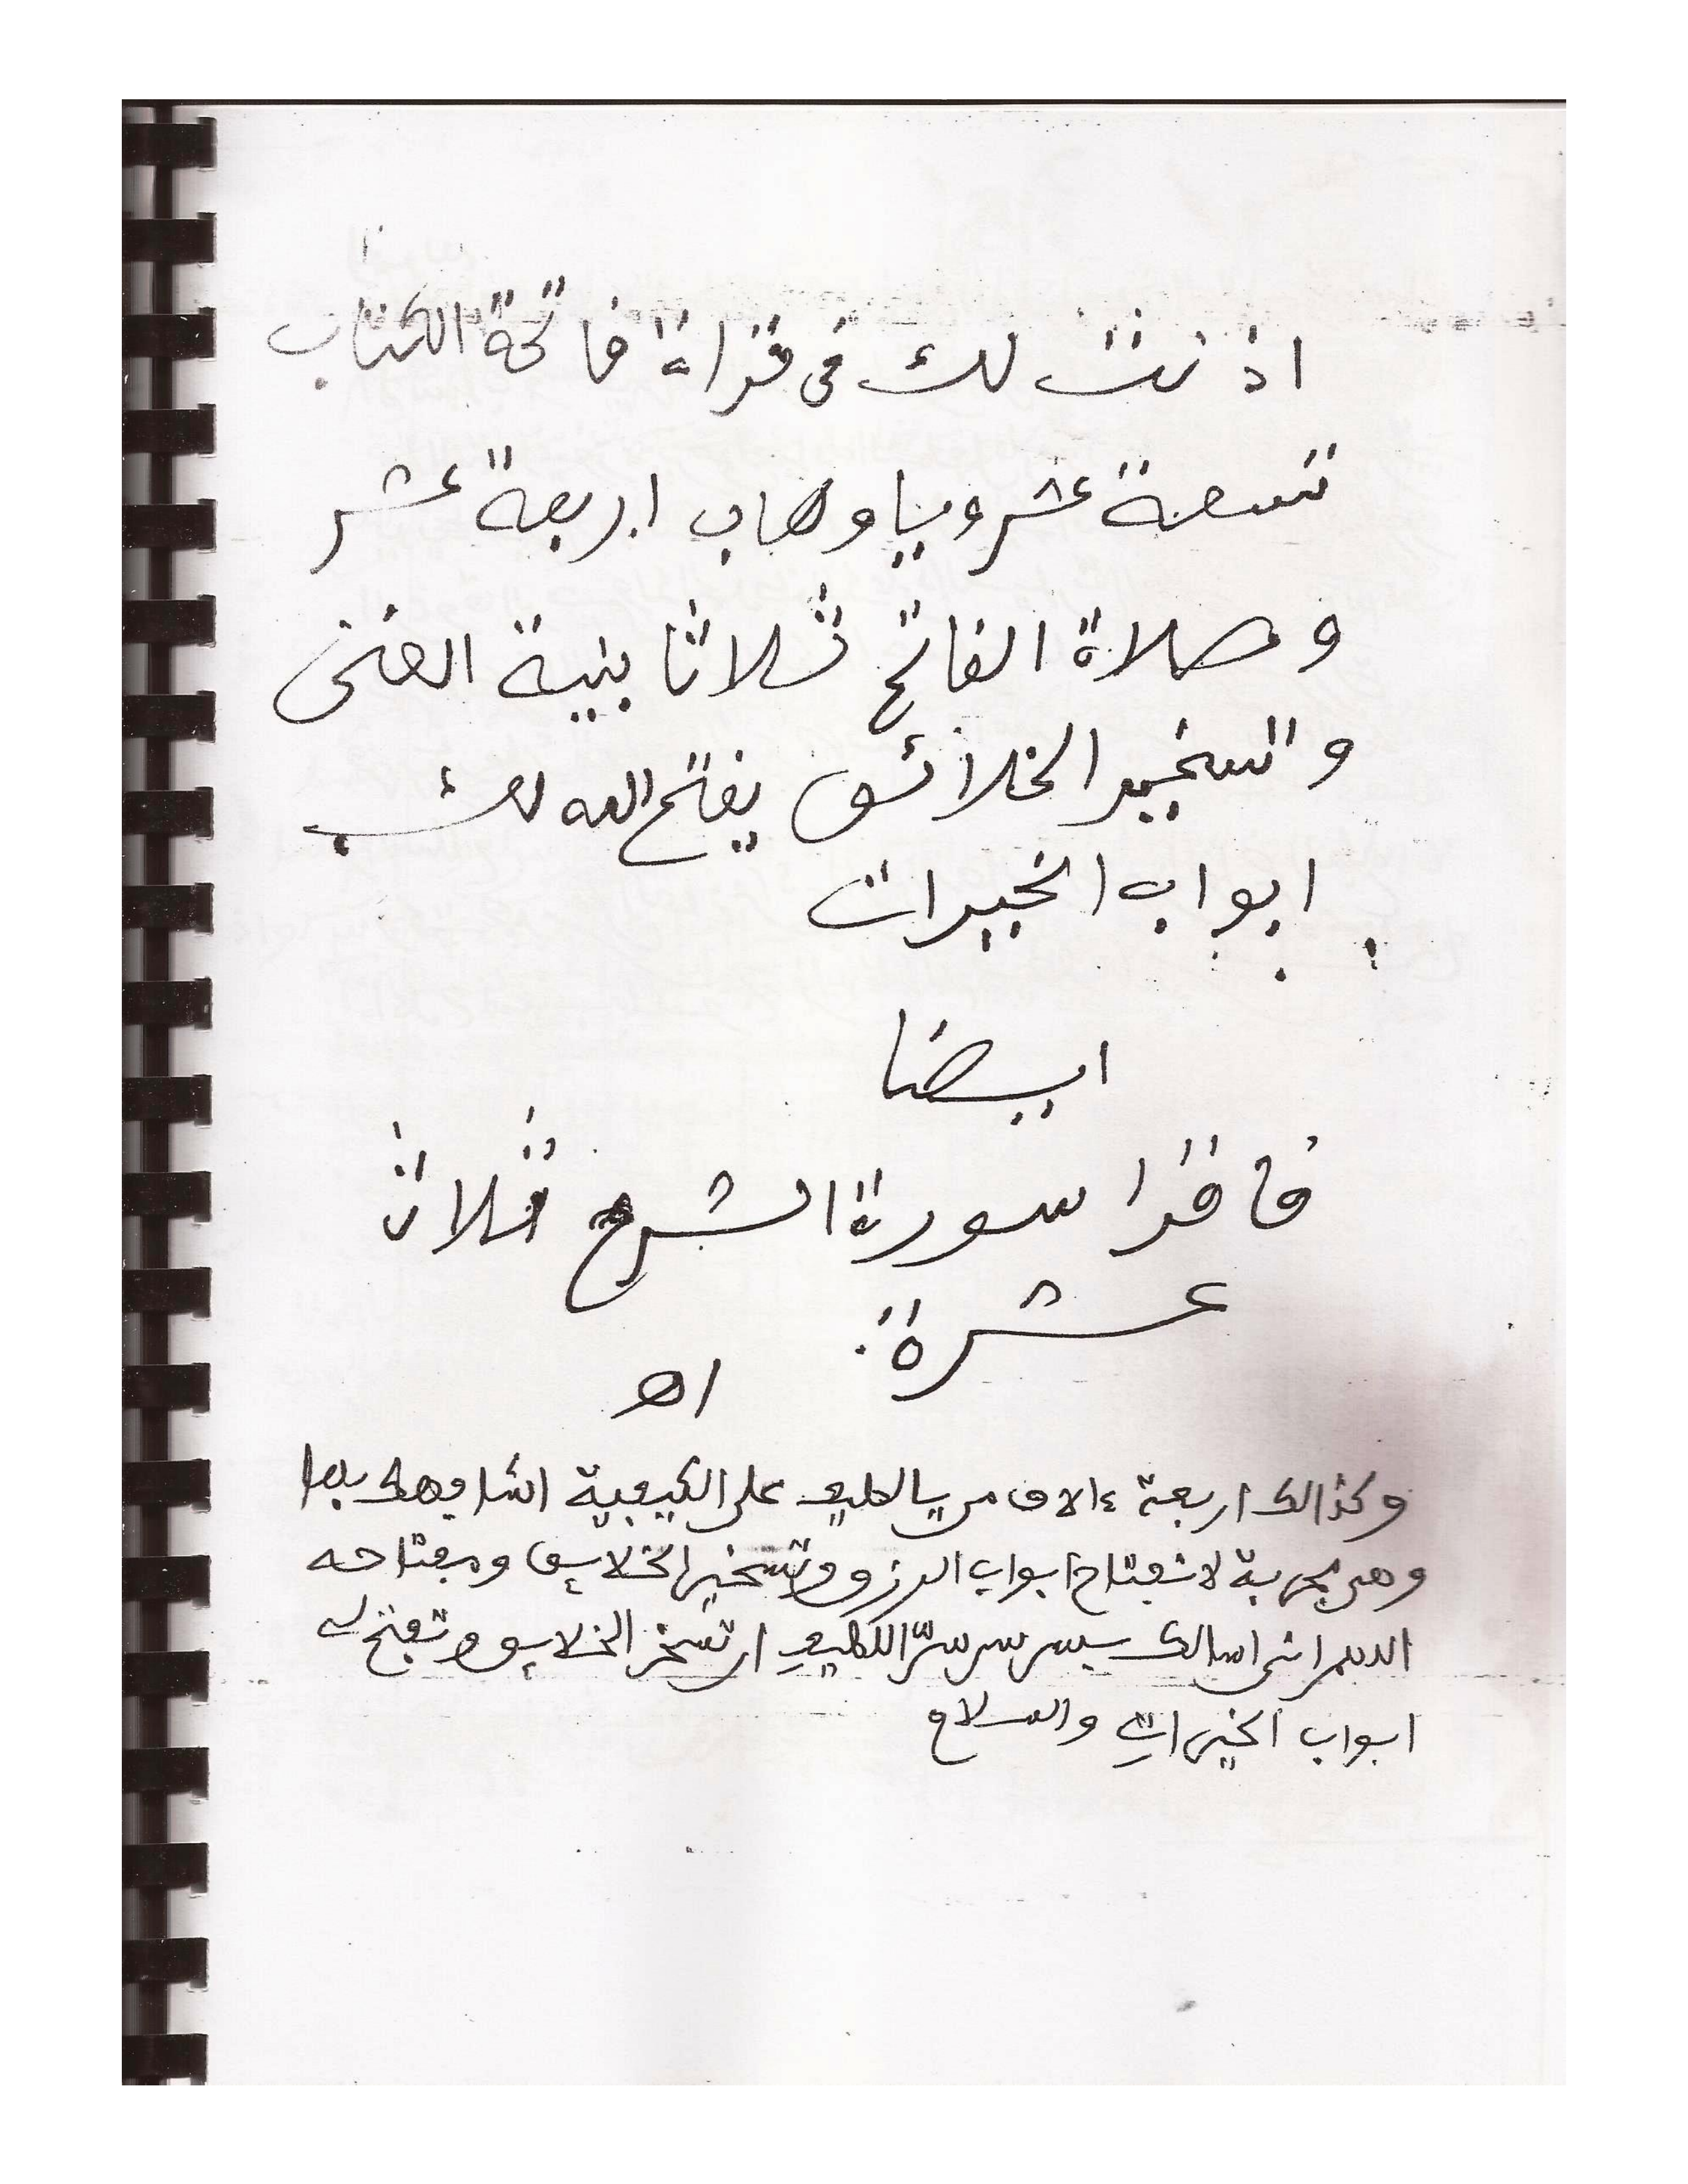 اذنت لك في قراءة فاتحة الكتاب
تسعة عشر ويا وهاب اربعة عشر
وصلاة الفاتح ثلاثا بنية الغنى
والتسخير الخلائق يفتح الله لك
ابواب الخيرات
ايضا
فاقرا سورة الشرح ثلاث
عشرة
اه
وكذالك اربعة ءالاف من يالطيف على الكيفية
وهي مجربة لانفتاح ابواب الرزق وتسخير الخلايق ومفتاحه
اللهم اني اسالك بسر سر سر اللطيف ان تسخر الخلايق وتفتح لي
ابواب الخيرات والسلام